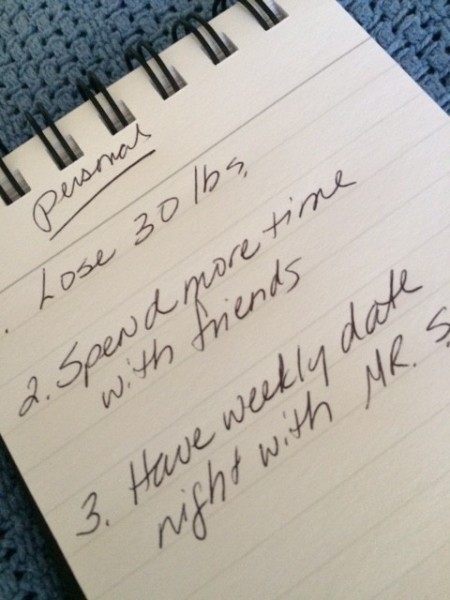 personal
. Lose 30 lbs.
2. Spend more time
with friends
3. Have weekly date
night with MR. S